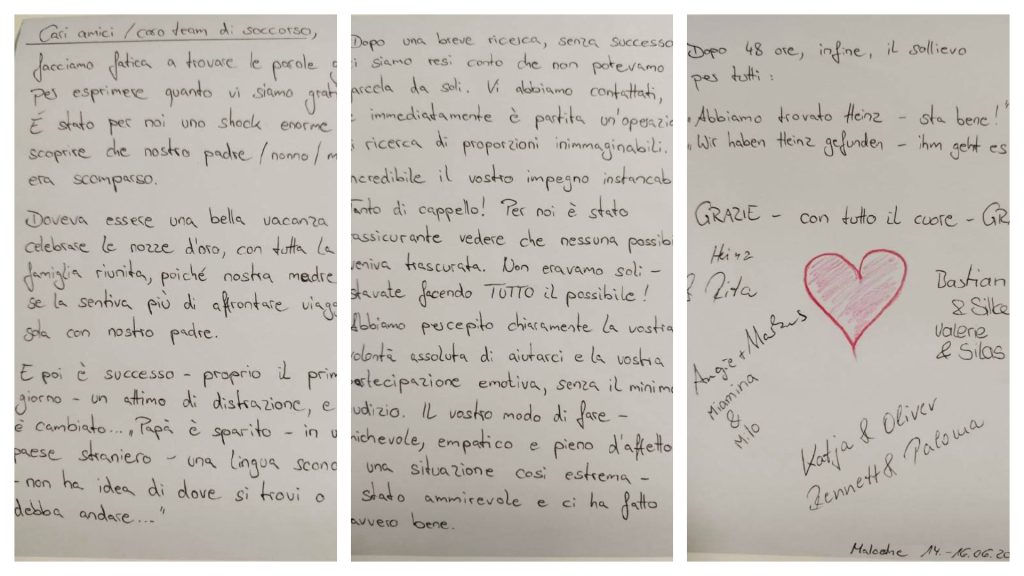 Cari amici / caro team di soccorso,
facciamo fatica a trovare le parole g
per esprimere quanto vi siamo grati
È stato per noi uno shock enorme
scoprire che nostro padre / nonno / m
era scomparso.
Doveva essere una bella vacanza
celebrare le nozze d'oro, con tutta la
famiglia riunita, poiché nostra madre
se la sentiva più di affrontare viagg
sola con nostro padre.
E poi è successo - proprio il prim
giorno - un attimo di distrazione, e
è cambiato... „Papà è sparito - in u
paese straniero - una lingua scono
- non ha idea di dove si trovi o
debba andare..."
Dopo una breve ricerca, senza successo
i siamo resi conto che non potevamo
arcela da soli. Vi abbiamo contattati,
e immediatamente è partita un'operazio
i ricerca di proporzioni inimmaginabili.
ncredibile il vostro impegno instancab
Tanto di cappello! Per noi è stato
assicurante vedere che nessuna possibi
veniva trascurata. Non eravamo soli -
stavate facendo TUTTO il possibile!
Abbiamo percepito chiaramente la vostra
volontà assoluta di aiutarci e la vostra
artecipazione emotiva, senza il minimo
udizio. Il vostro modo di fare -
ichevole, empatico e pieno d'affetto
una situazione così estrema -
stato ammirevole e ci ha fatto
avvero bene.
Dopo 48 ore, infine, il sollievo
per tutti:
„Abbiamo trovato Heinz - sta bene!"
„Wir haben Heinz gefunden - ihm geht es
GRAZIE - con tutto il cuore - GR
Heinz
& Rita
Bastian
& Silke
Valerie
& Silas
Angie + Markus
Miamina
&
Milo
Katja & Oliver
Bennett & Paloma
14.-16.06.20